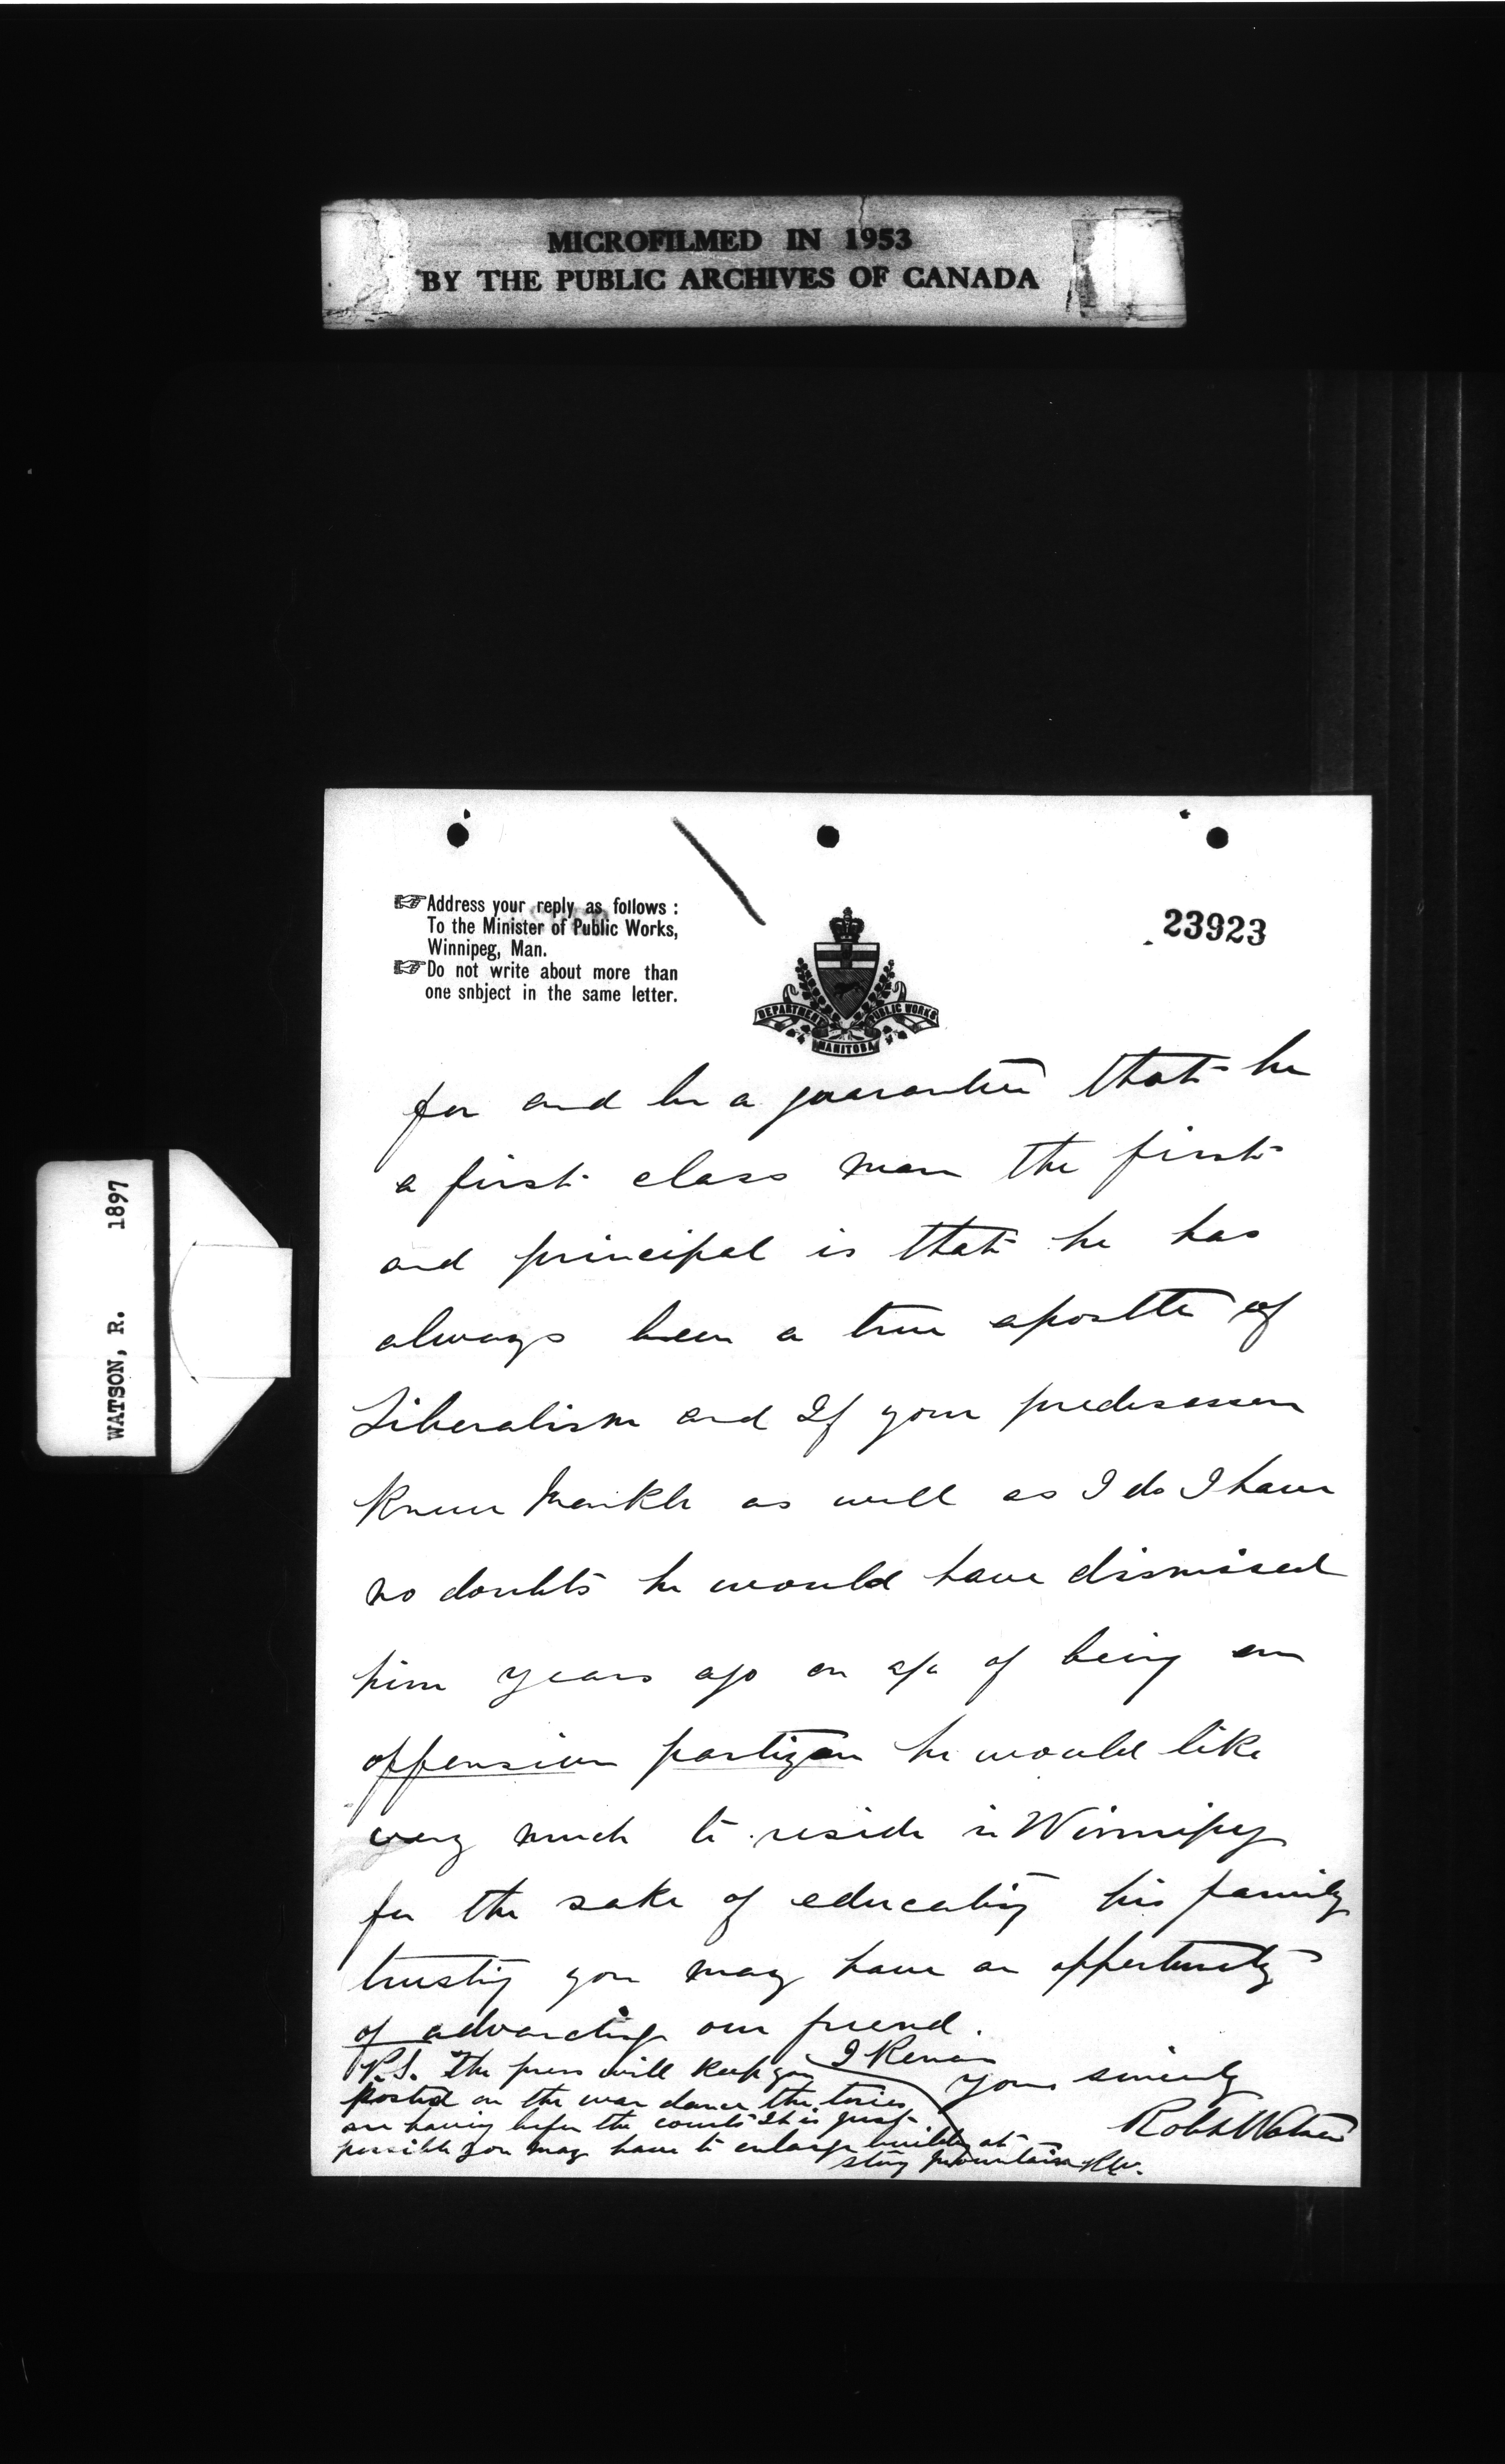 MICROFILMED IN 1953
BY THE PUBLIC ARCHIVES OF CANADA
WATSON, R. 1897
Address your reply as follows :
To the Minister of Public Works,
Winnipeg, Man.
Do not write about more than
one snbject in the same letter.
23923
DEPARTMENT PUBLIC WORKS
MANITOBA
for and be a guarantee that he
a first class man the first
and principal is that he has
always been a true apostle of
Liberalism and If your predesessor
knew Markle as well as I do I have
no doubts he would have dismissed
him years ago on a/c of being an
offensive partizan he would like
very much to reside in Winnipeg
for the sake of educating his family
trusting you may have an oppertunity
of advancing our friend.
I Remain
Yours sincerely
Robt Watson
P.S. The press will keep you
posted on the war dance the tories
are having before the courts It is just
possible you may have to enlarge building at
stony mountain RW.